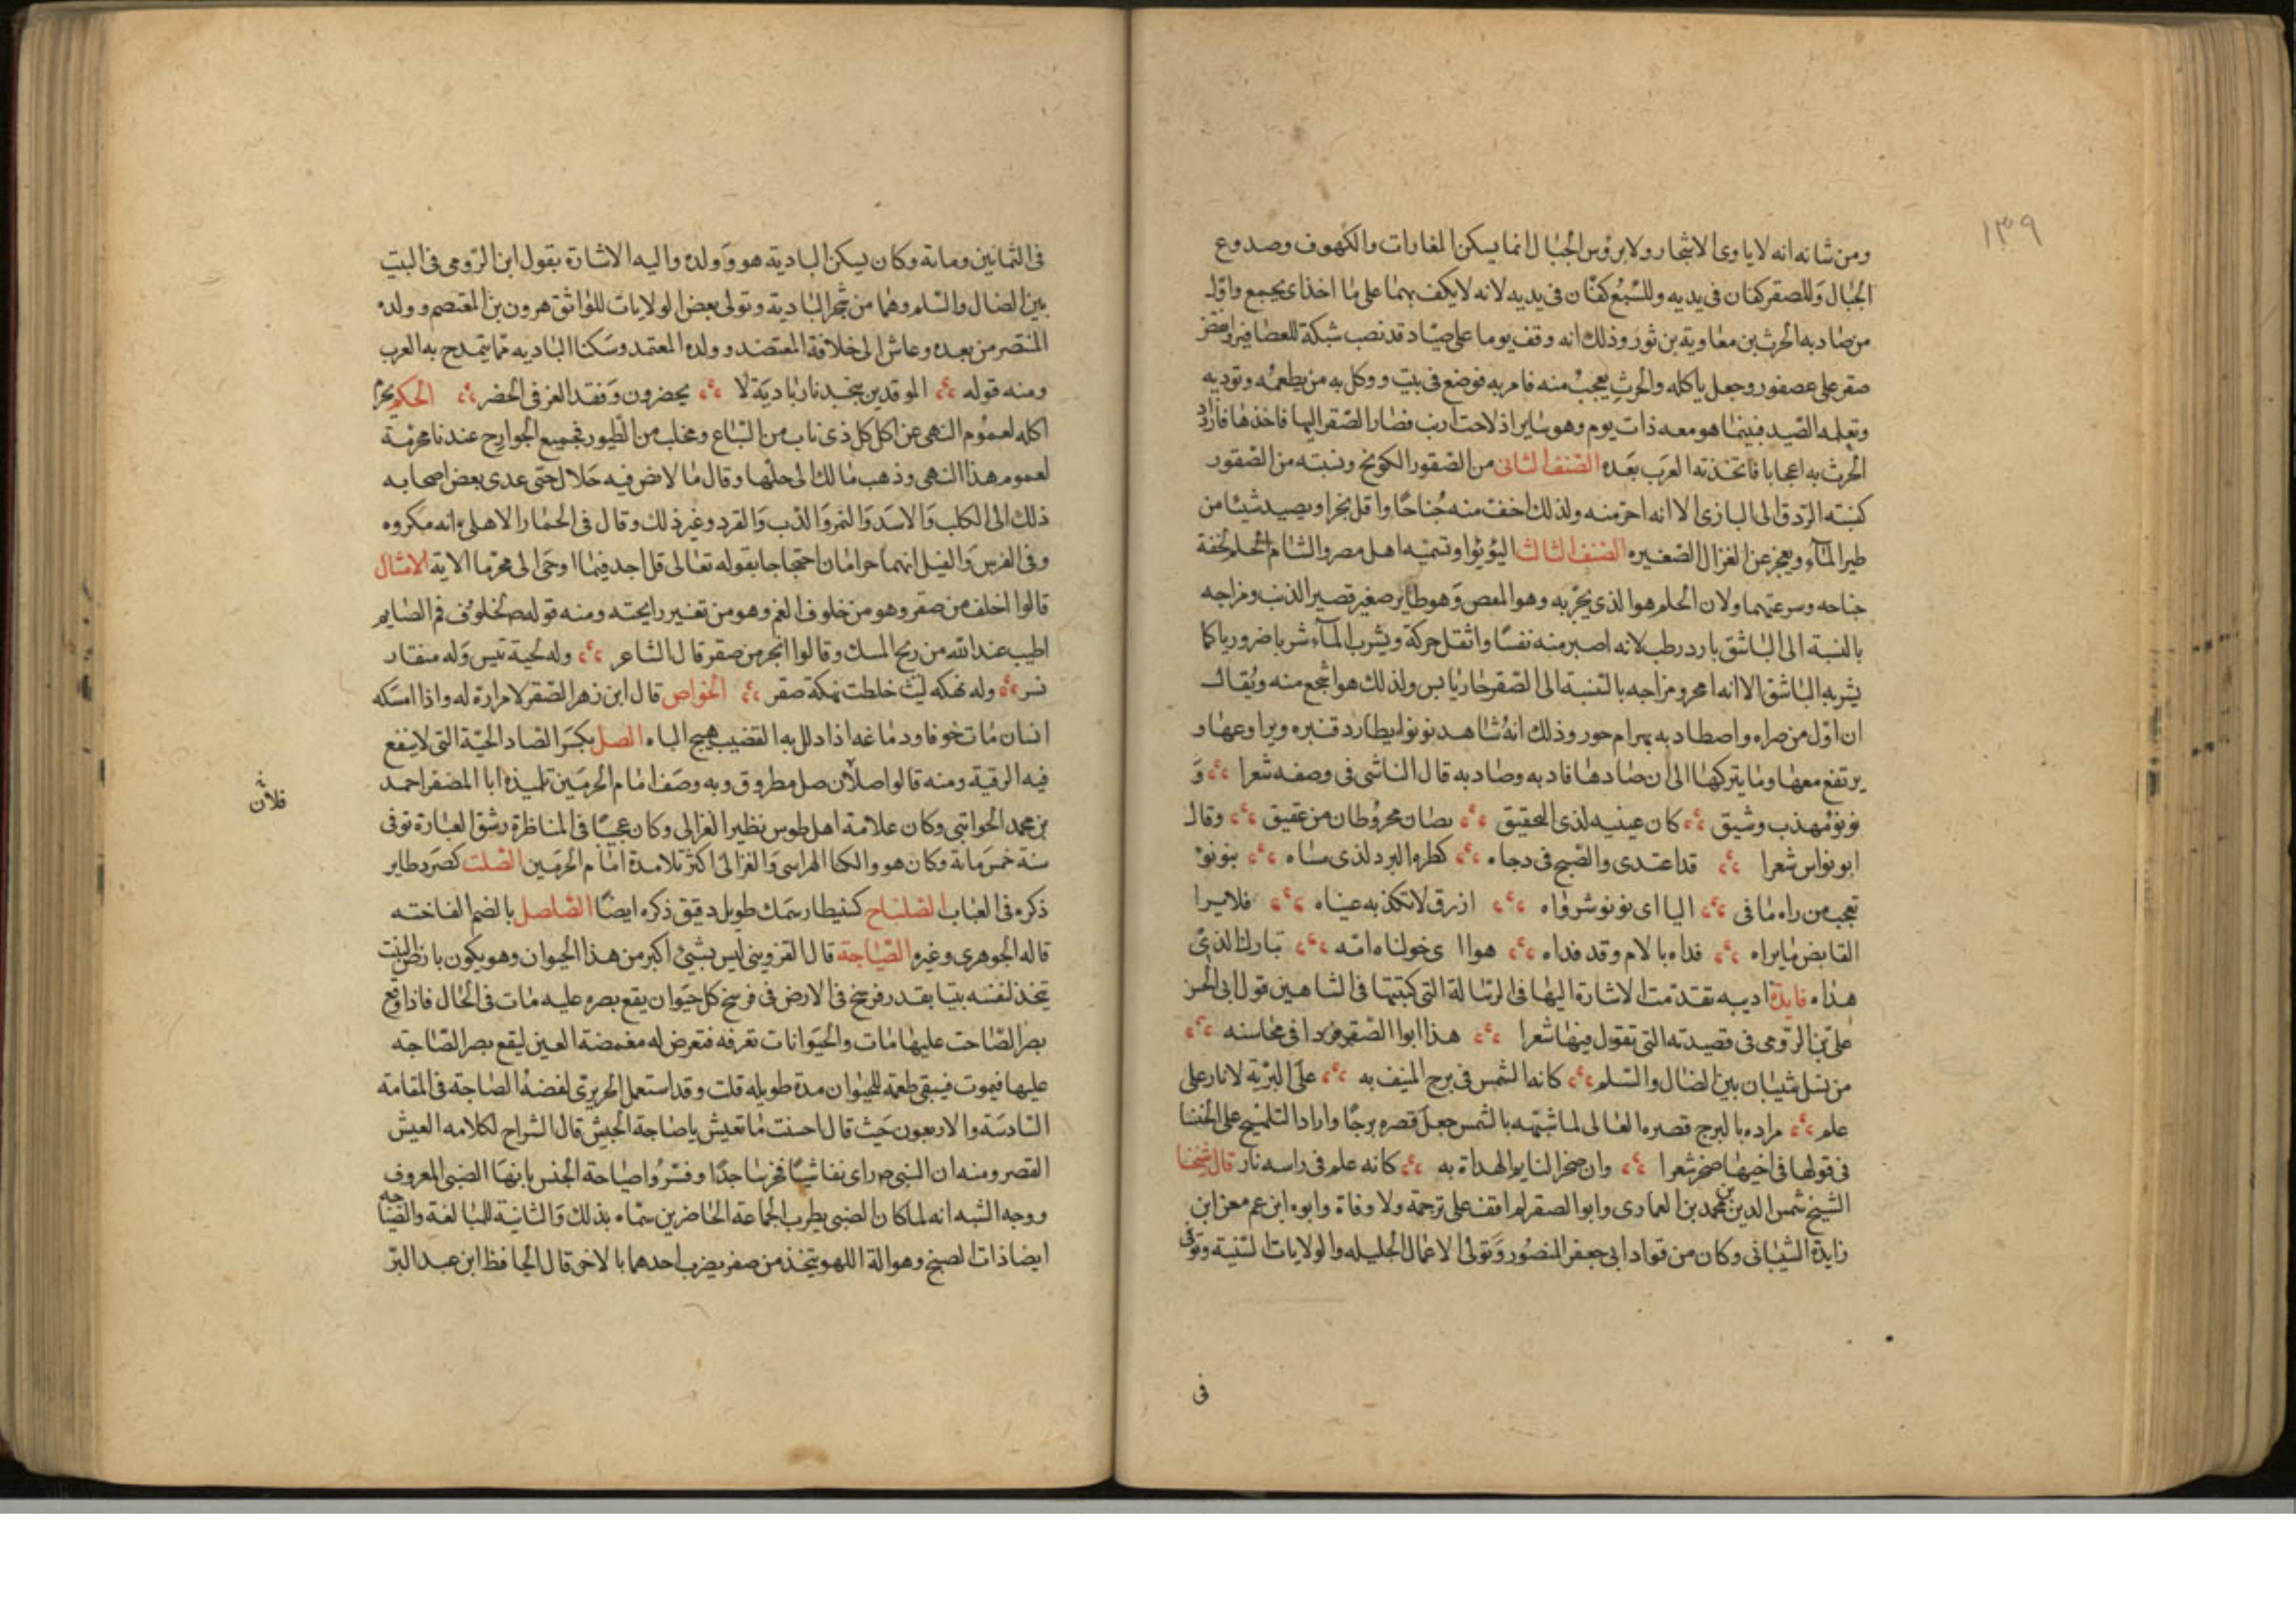 ١٣٩
ومن شانه انه لا ياوى الاشجار ولا بروس الجبال انما يسكن المغارات والكهوف وصدوع
الجبال وللصقر كفان فى يديه وللسبع كفان فى يديه لانه لا يكف بهما على ما اخذ اى يجمع واول
من صاد به الحرث بن معاوية بن ثور وذلك انه وقف يوما على صياد قد نصب شبكة للعصافير وانقض
صقر على عصفور وجعل ياكله والحرث يعجب منه فامر به فوضع فى بيت ووكل به من يطعمه وتوديه
وتعلمه الصيد فبينما هو معه ذات يوم وهو ساير اذ لاحت ارنب فصار الصقر اليها فاخذها فازداد
الحرث به اعجابا فاتخذته العرب بعده الصنف الثانى من الصقور الكونج ونسبته من الصقور
كنسبته الزرق الى البازى الا انه احر منه ولذلك اخف منه جناحا واقل بخرا ويصيد شيئا من
طير المآء ويعجز عن الغزال الصغيره الصنف الثالث اليؤيؤا وتسميه اهل مصر والشام الحلم لخفة
جناحه وسرعتهما ولان الحلم هو الذى يجز به وهو المعص وهو طاير صغير قصير الذنب ومزاجه
بالنسبة الى الباشق بارد رطب لانه اصبر منه نفسا واثقل حركة ويشرب المآء شربا ضروريا كما
يشربه الباشق الا انه امحر ومزاجه بالنسبة الى الصقر حار يابس ولذلك هو اشجع منه ويقال
ان اول من ضراه واصطاد به بهرام جور وذلك انه شاهد نونوا يطارد قنبره ويراوعها و
يرتفع معها وما يتركها الى ان صادها فادبه وصاد به قال الناشى فى وصفه شعرا ؞ و
نونؤ مهذب وشيق ؞ كان عينيه لذى التحقيق ؞ نصان مخروطان من عقيق ؞ وقال
ابو نواس شعرا ؞ قد اعتدى والصبح فى دجاه ؞ كطره البرد لذى سناه ؞ بنونؤ
تعجب من راه ما فى ؞ اليااى نونو شرواه ؞ ازرق لا تكذبه عيناه ؞ فلا يرا
القابض ما يراه ؞ فداه بالام وقد فداه ؞ هو ا ا ى خولناه الله ؞ تبارك الذى
هداه فايدة ادبيه تقدمت الاشارة اليها فى الرسالة التى كتبتها فى الشاهين قول ابى الحسن
على بن الرومى فى قصيدته التى تقول فيها شعرا ؞ هذا ابوا الصقر فردا فى محاسنه ؞
من نسل شيبان بين الضال والسلم ؞ كانه الشمس فى برج المنيف به ؞ على البرية لا نار على
علم ؞ مراده بالبرج قصره العالى لما شبهه بالشمس جعل قصره برجا واراد التلميح على الخنسا
فى قولها فى اخيها صخر شعرا ؞ وان صخرا لتاتم الهداة به ؞ كانه علم فى راسه نار قال شيخنا
الشيخ شمس الدين بن محمد بن العمارى وابو الصقر لم اقف على ترجمة ولا وفاة وابوه ابن عم معن ابن
زايدة الشيبانى وكان من قواد ابى جعفر المنصور وتولى الاعمال الجليله والولايات السنية وتوفى
فى
فى الثمانين ومائة وكان يسكن البادية هو وولده واليه الاشارة بقول ابن الرومى فى البيت
بين الضال والسلم وهما من شجر البادية وتولى بعض الولايات للواثق هرون بن المعتصم وولده
المنتصر من بعده وعاش الى خلافة المعتضد وولده المعتمد وسكنا الباديه مما يتمدح به العرب
ومنه قوله ؞ الموقدين بنجد نار بادية لا ؞ يحضرون وفقد العز فى الحضر ؞ الحكم يحرم
اكله لعموم النهى عن اكل كل ذى ناب من السباع ومخلب من الطيور فجميع الجوارح عندنا محرمة
لعموم هذا النهى وذهب مالك الى حلها وقال ما لا نص فيه حلال حتى عدى بعض اصحابه
ذلك الى الكلب والاسد والنمر والدب والقرد وغير ذلك وقال فى الحمار الاهلى انه مكروه
وفى الفرس والفيل انهما حرامان احتجاجا بقوله تعالى قل لا اجد فيما اوحى الى محرما الاية الامثال
قالوا اخلف من صقر وهو من خلوف الفم وهو من تغيير رايحته ومنه قوله صلى لخلوف فم الصايم
اطيب عند الله من ريح المسك وقالوا انجر من صقر قال الشاعر ؞ وله لحية تيس وله منقار
نسر ؞ وله نهكه ليث خلطت نهكة صقر ؞ الخواص قال ابن زهر الصقر لا مرارة له واذا امسكه
انسان مات خوفا ودماغه اذا دلل به القضيب هيج الباه الصل بكسر الصاد الحية التى لا ينفع
فيه الرقية ومنه قالوا صل فلان صل مطروق وبه وصف امام الحرمين تلميذه ابا المضفر احمد
بن محمد الخوافى وكان علامة اهل طوس نظير الغزالى وكان عجيبا فى المناظرة رشق العبارة توفى
سنة خمس مائة وكان هو والكيا الهراسى والغزالى اكثر تلامدة امام الحرمين الصلت كصرد طاير
ذكره فى العباب الصلنباح كسقنطار سمك طويل دقيق ذكره ايضا الصلصل بالضم الفاخته
قاله الجوهرى وغيره الصناجة قال القزوينى ليس بشيئ اكبر من هذا الحيوان وهو يكون بارض التبت
يتخذ لنفسه بيتا بقدر فرسخ فى الارض فى فرسخ كل حيوان يقع بصره عليه مات فى الحال فاذا وقع
بصر الصناجة عليها مات والحيوانات تعرفه فتعرض له مغمضة العين ليقع بصر الصناجه
عليها فيموت فيبقى طعمة للحيوان مدة طويله قلت وقد استعمل الحريرى لفضة الصناجة فى المقامة
السادسة والاربعون حيث قال احسنت ما تعيش يا صناجة الجيش قال الشراح لكلامه العيش
القصر ومنه ان النبى صلى راى نفاشيا فخر ساجدا وفسروا صناجة الجنس بانها الصبى المعروف
ووجه الشبه انه لما كان الصبى يطرب الجماعة الحاضرين سماه بذلك والثانية للمبالغة والصناجه
ايضا ذات الصنج وهو الة اللهو يتخذ من صفر يضرب احدهما بالاخر قال الحافظ ابن عبد البر
فلان